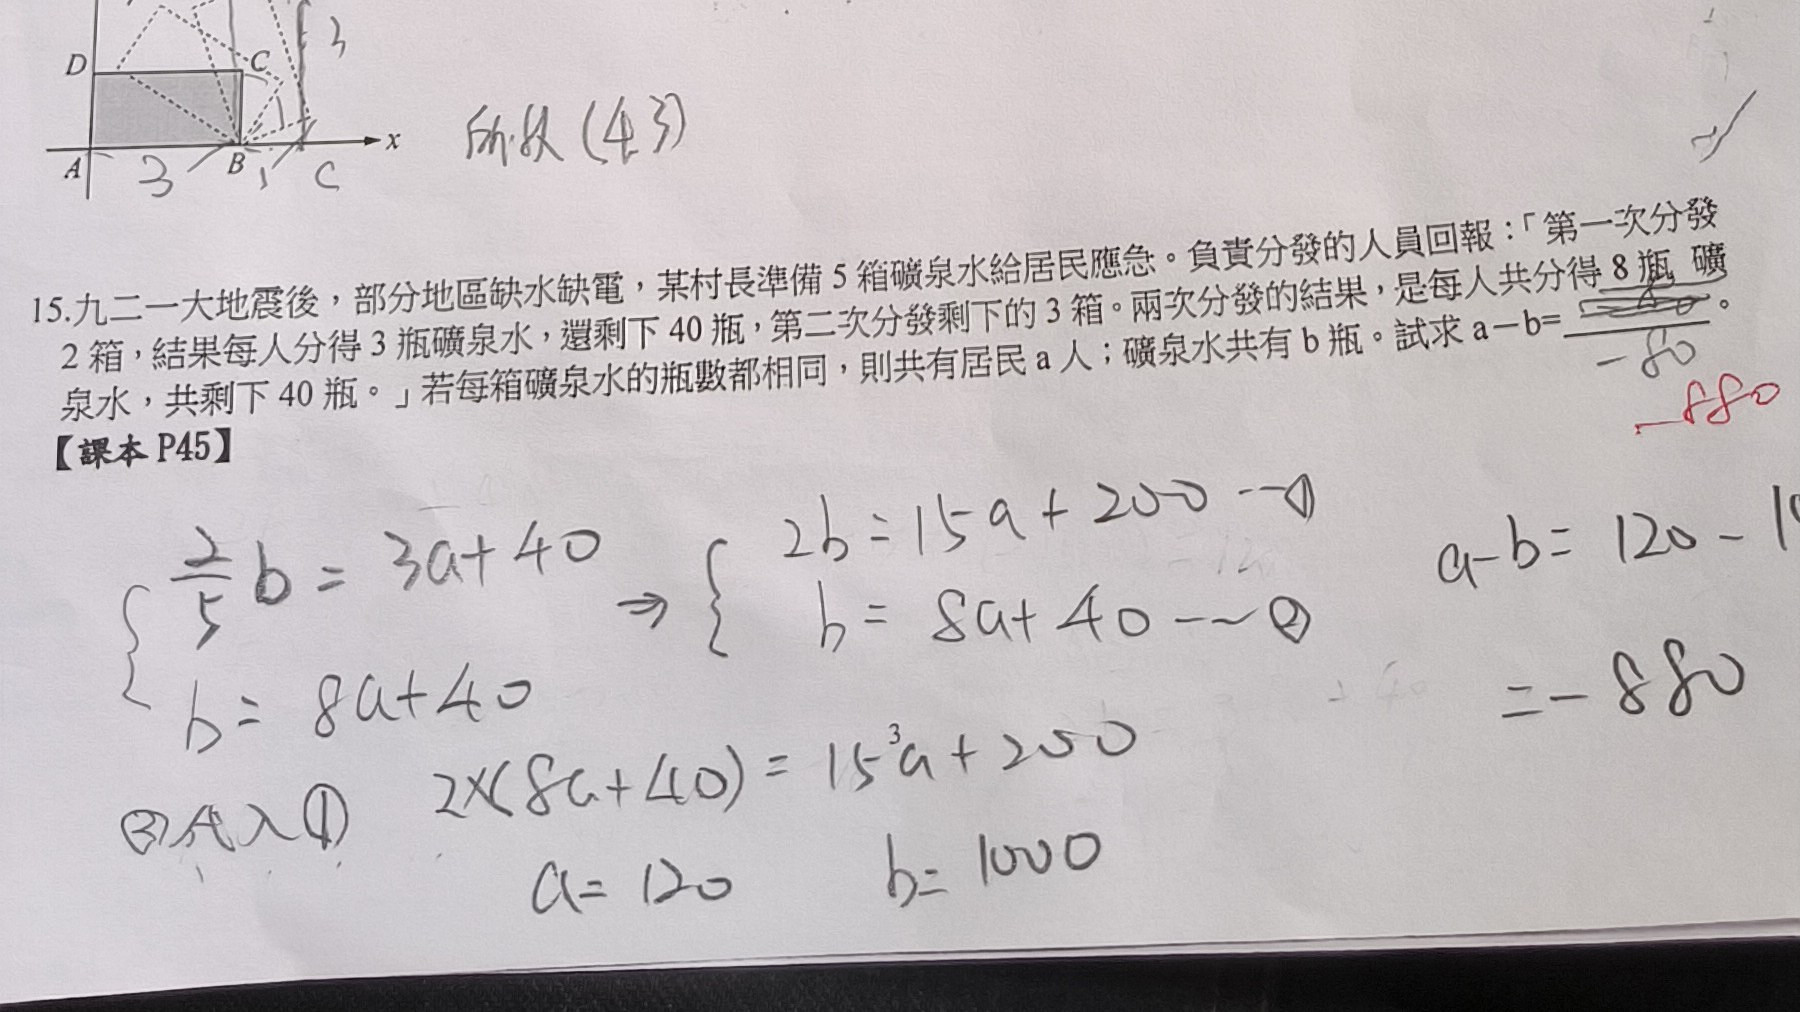 3
D
C
A
3
B
1
C
x
所以(4,3)
15.九二一大地震後，部分地區缺水缺電，某村長準備 5 箱礦泉水給居民應急。負責分發的人員回報：「第一次分發
2 箱，結果每人分得 3 瓶礦泉水，還剩下 40 瓶，第二次分發剩下的 3 箱。兩次分發的結果，是每人共分得 8 瓶 礦
泉水，共剩下 40 瓶。」若每箱礦泉水的瓶數都相同，則共有居民 a 人；礦泉水共有 b 瓶。試求 a－b=　　　。
-80
-880
【課本 P45】
2/5 b = 3a+40
b = 8a+40
⇒
2b = 15a + 200 --- ①
b = 8a+40 --- ②
a-b = 120 -
= -880
②代入①
2×(8a+40) = 15a + 200
3
a = 120
b = 1000